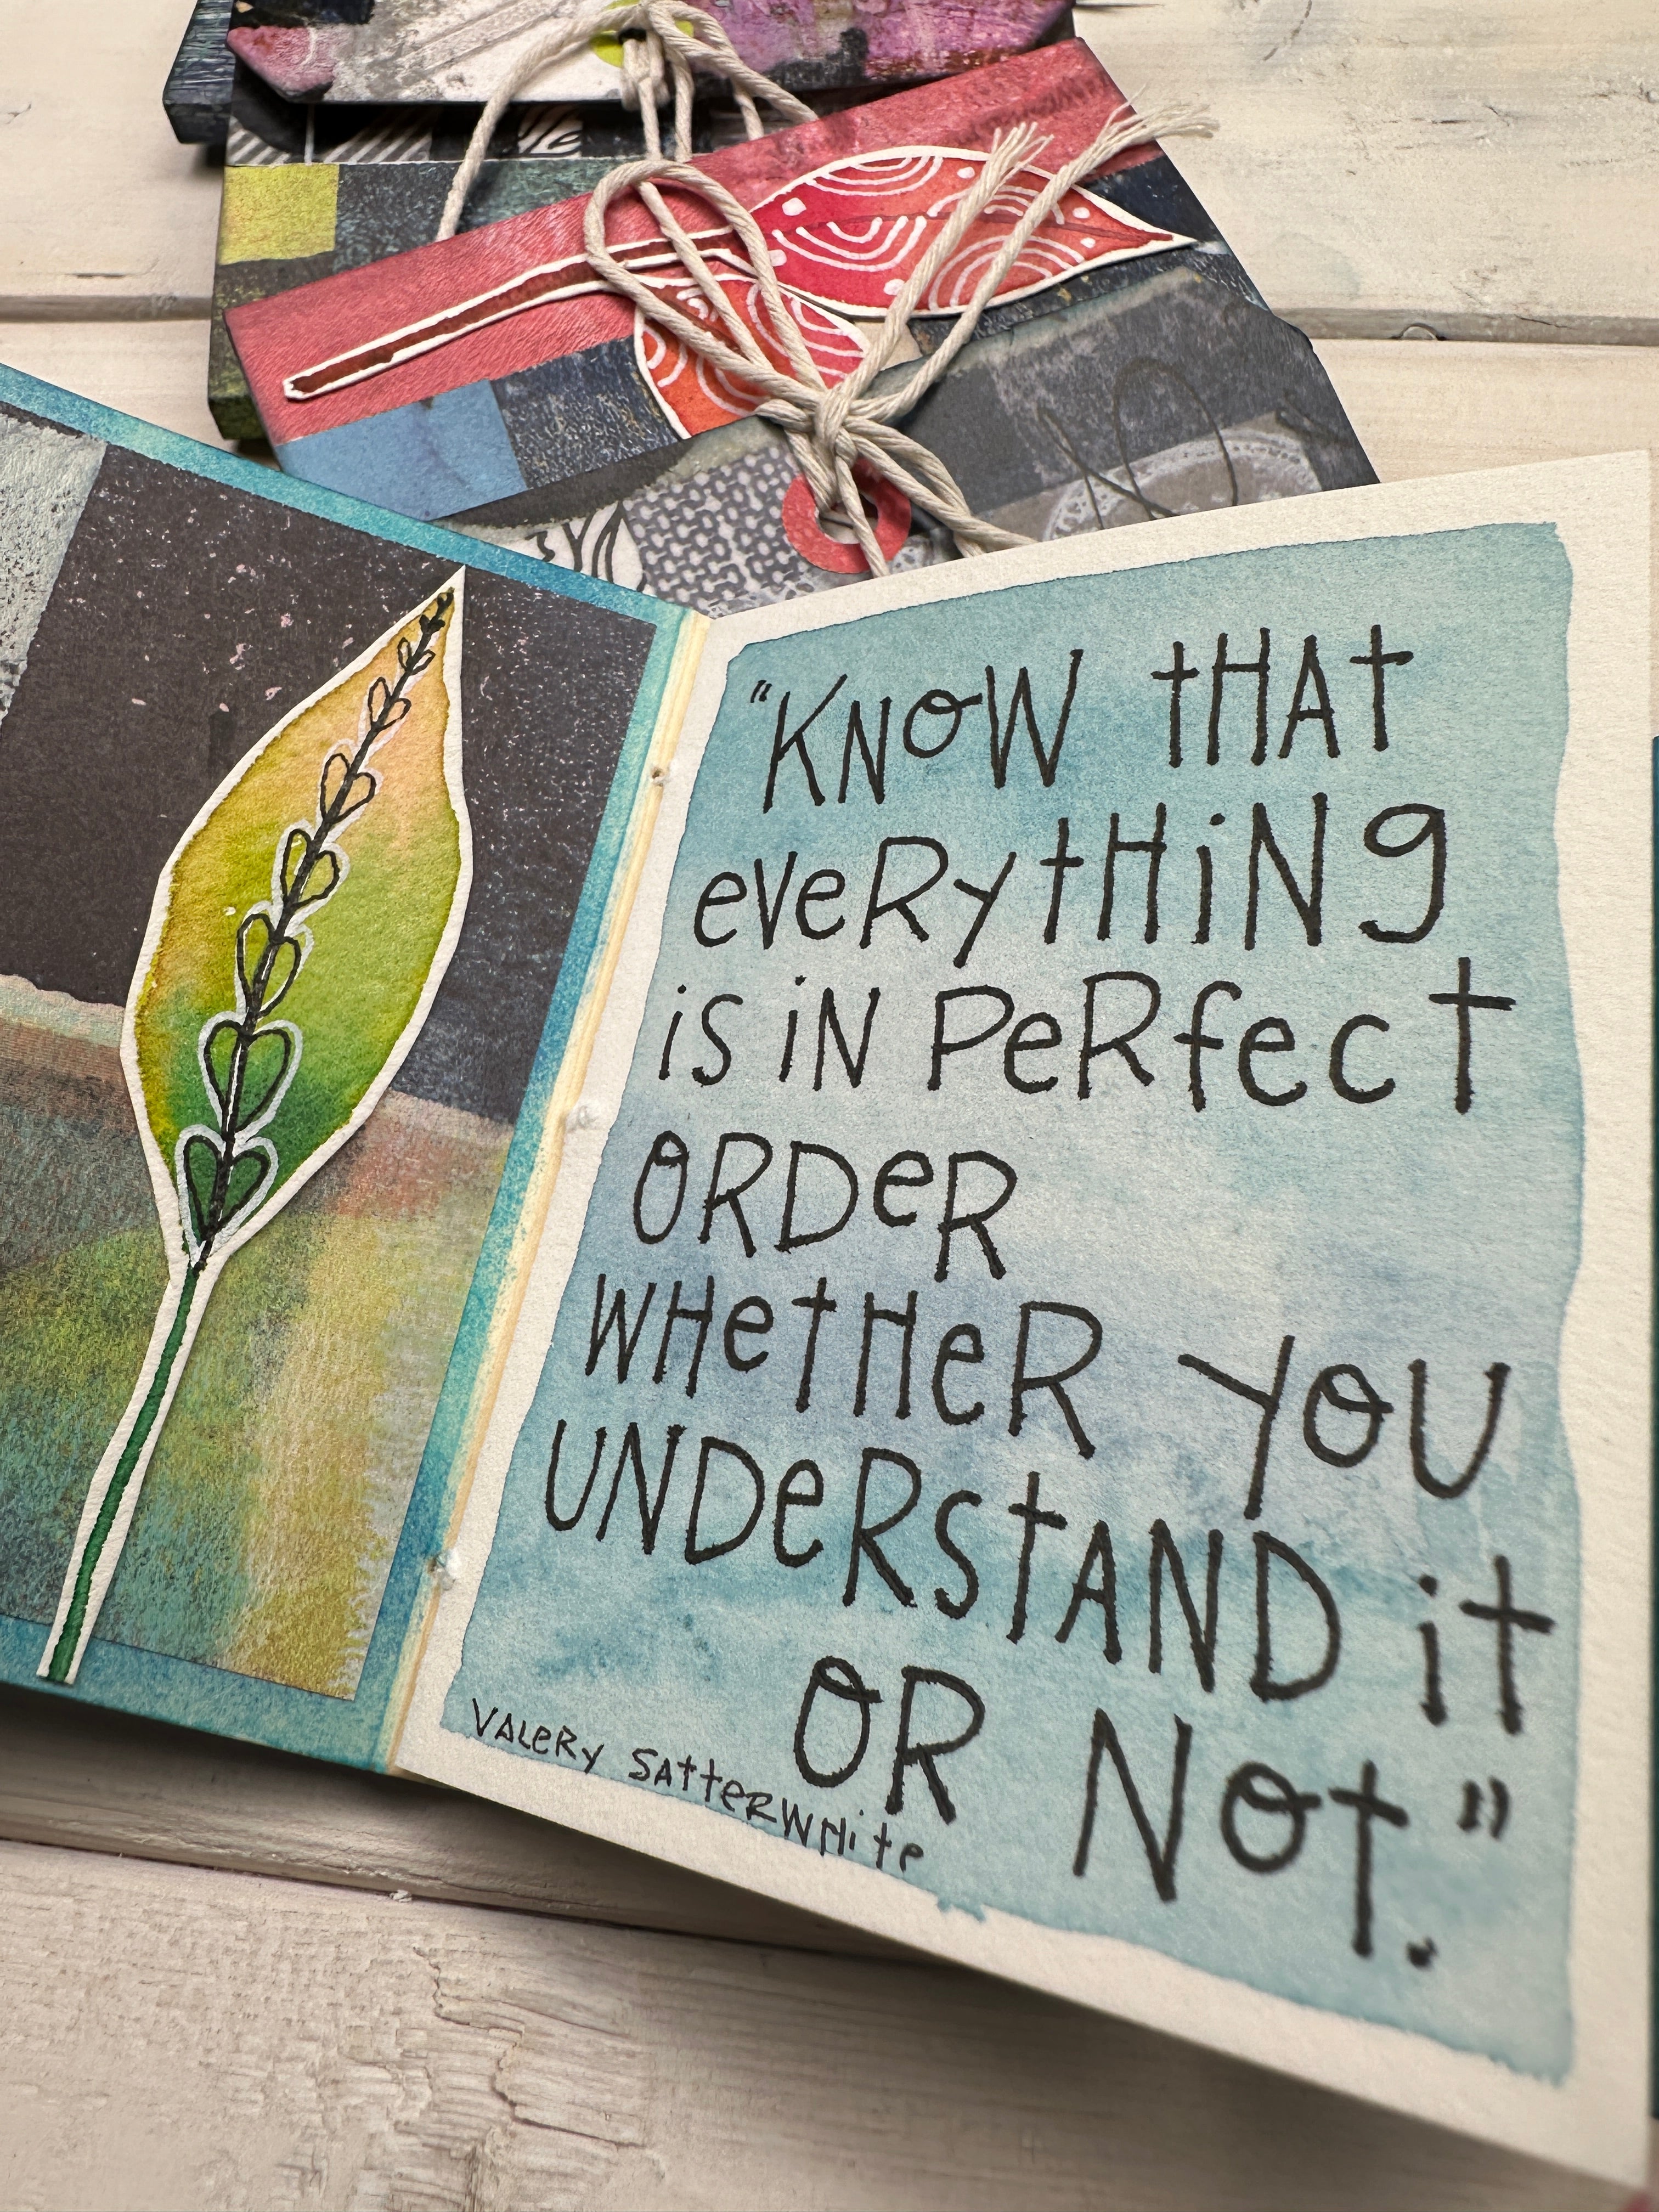 "KNOW tHAt
eVeRytHiNg
iS iN PeRfect
ORDeR
WHetHeR yOU
UNDeRStAND it
OR NOt."
VALeRy SatteRWHite